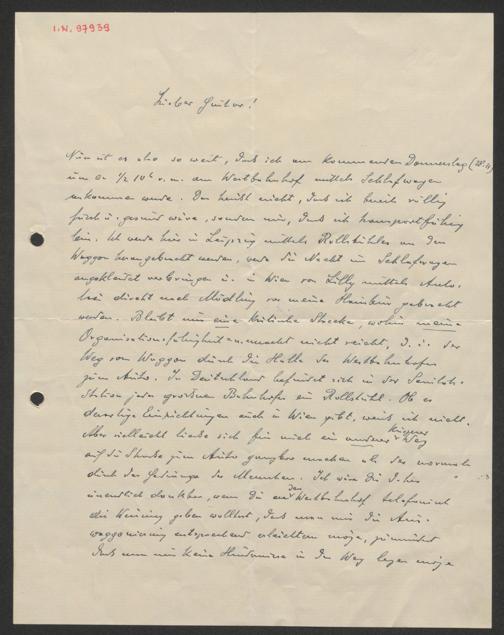 I.N. 97939
Lieber Gustav!
Nun ist es also so weit, daß ich am kommenden Donnerstag
um ca ½ 10ʰ v. m. am Westbahnhof mittels Schlafwagen
ankommen werde. Das heißt nicht, daß ich bereits völlig
frisch u. gesund wäre, sondern nur, daß ich transportfähig
bin. Ich werde hier in Leipzig mittels Rollstuhles an den
Waggon herangebracht werden, werde die Nacht im Schlafwagen
angekleidet verbringen u. in Wien von Lilly mittels Auto-
taxi direkt nach Mödling vor meine Haustür gebracht
werden. Bleibt nur eine kritische Strecke, wohin meine
Organisationsfähigkeit u. macht nicht reicht, d. i. der
Weg vom Waggon durch die Halle des Westbahnhofes
zum Auto. In Deutschland befindet sich in der Sanitäts-
station jedes größeren Bahnhofes ein Rollstuhl. Ob es
derartige Einrichtungen auch in Wien gibt, weiß ich nicht.
Aber vielleicht ließe sich für mich ein anderer kürzerer Weg
auf die Straße zum Auto gangbar machen als der normale
durch das Gedränge der Menschen. Ich wäre Dir d. her
unendlich dankbar, wenn Du an den Westbahnhof telefonisch
die Weisung geben wolltest, daß man mir die Aus-
waggonierung entsprechend erleichtern möge, zumindest
daß man mir keine Hindernisse in den Weg legen möge